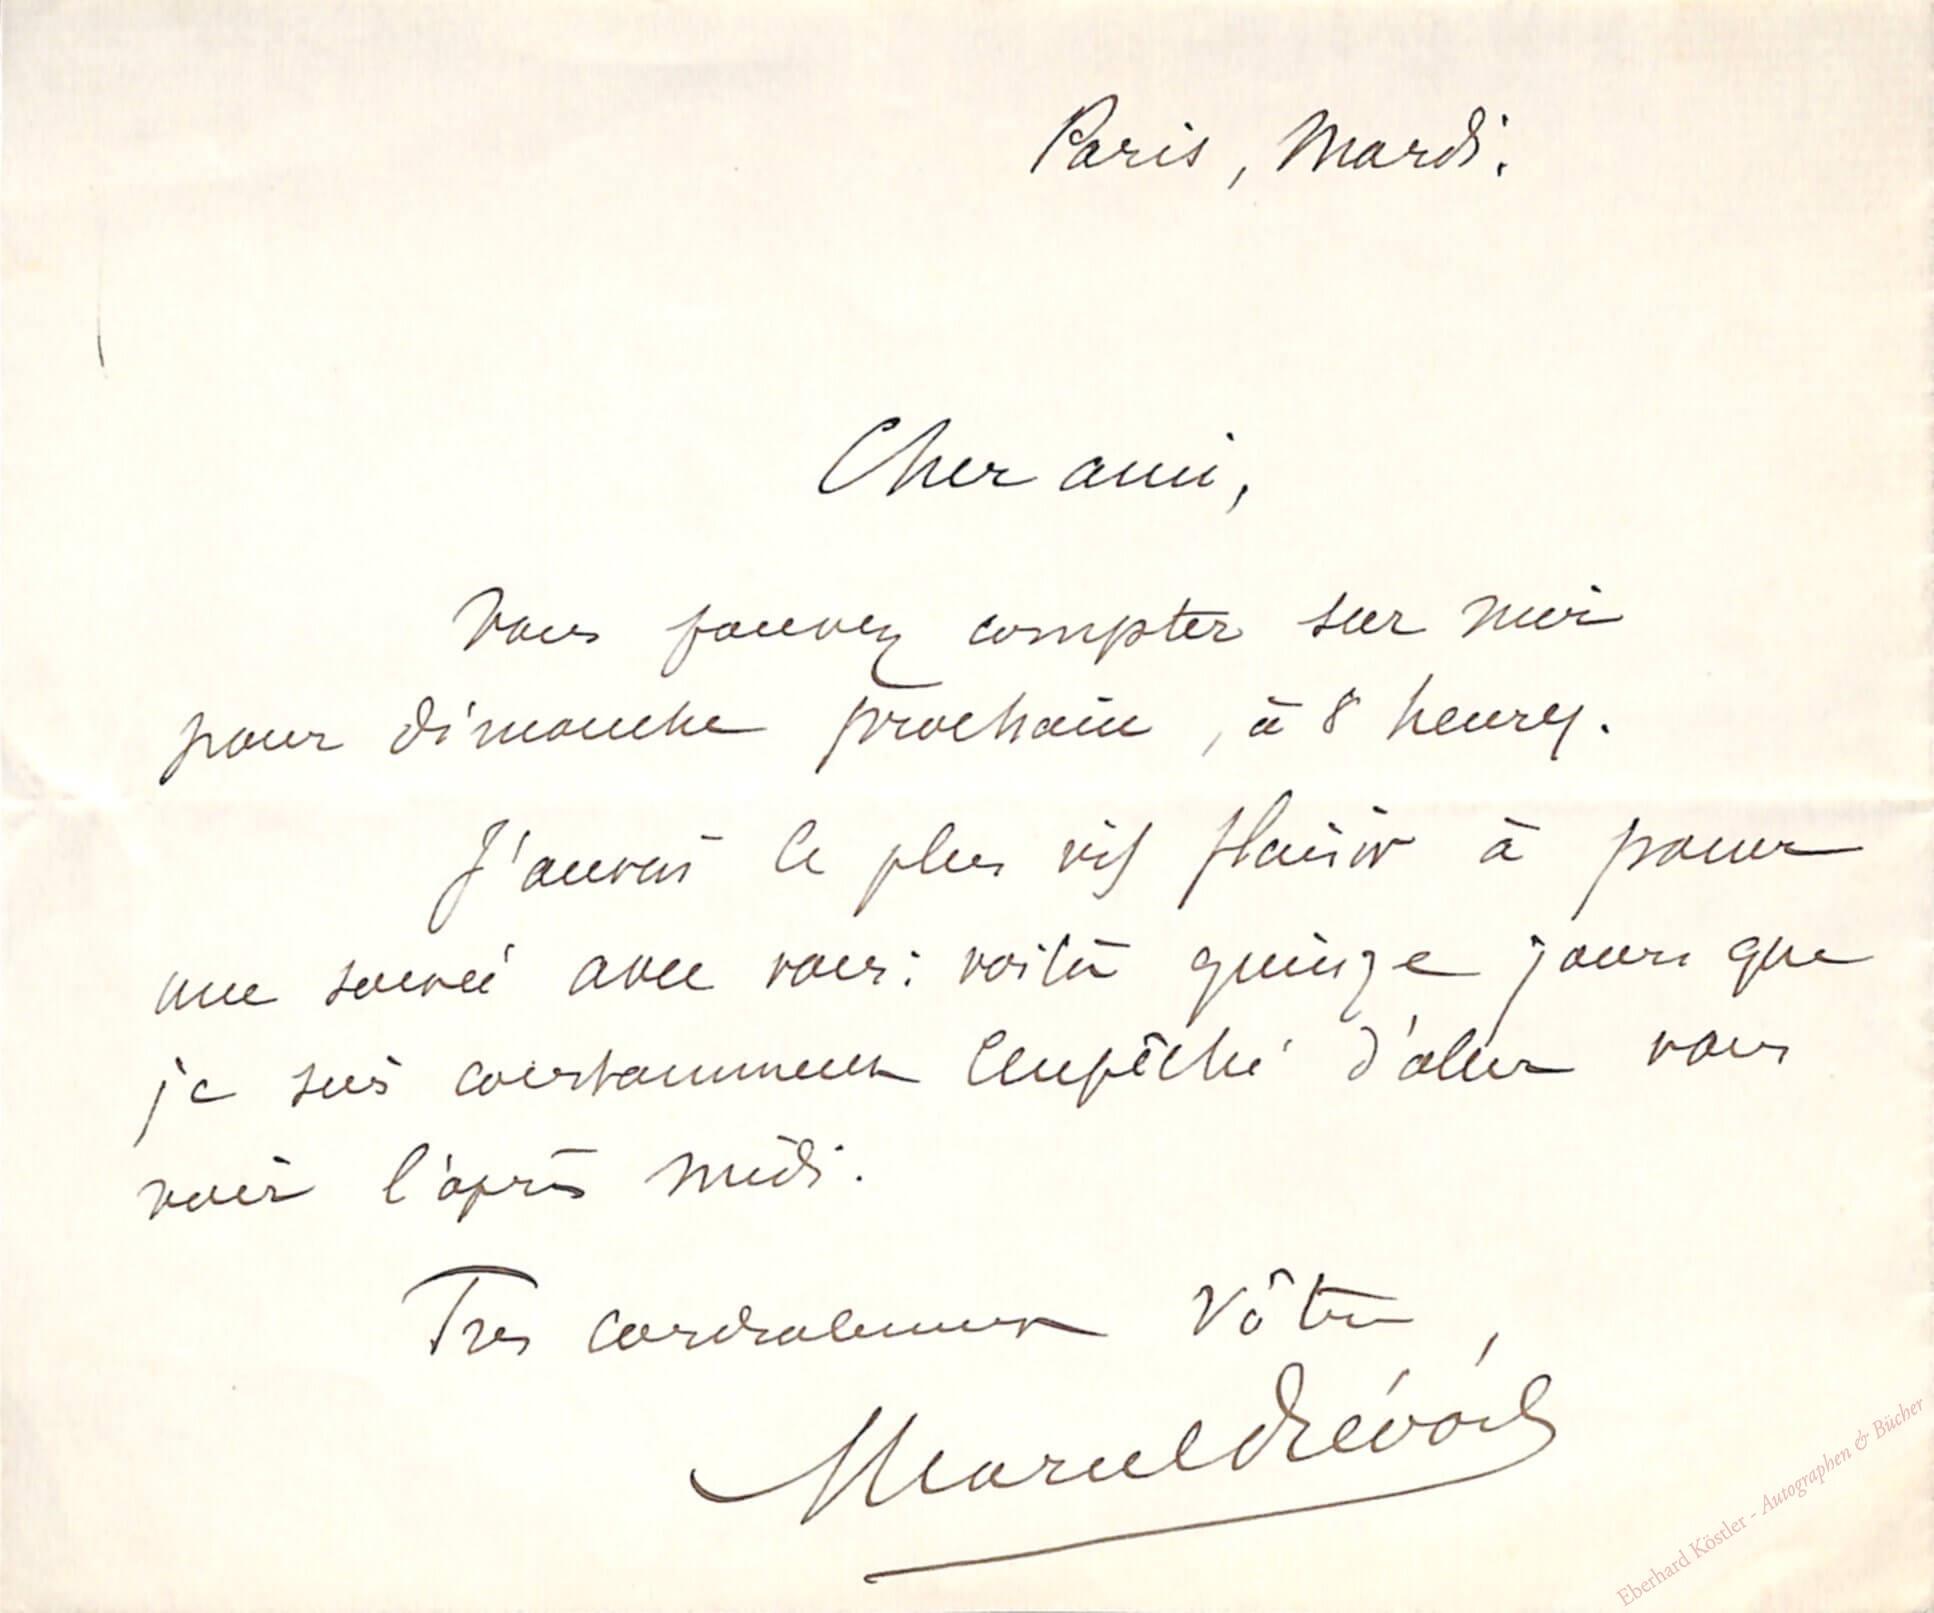 Paris, Mardi.
Cher ami,
Vous pouvez compter sur moi
pour dimanche prochain, à 8 heures.
J'aurai le plus vif plaisir à passer
une soirée avec vous : voilà quinze jours que
je suis constamment empêché d'aller vous
voir l'après midi.
Très cordialement vôtre,
Marcel Prévost
Eberhard Köstler - Autographen & Bücher